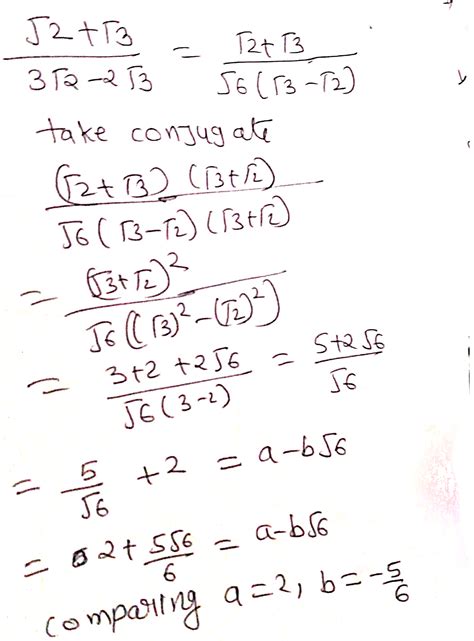 (√2 + √3) / (3√2 - 2√3) = (√2 + √3) / (√6 (√3 - √2))
take conjugate
(√2 + √3) (√3 + √2) / (√6 (√3 - √2) (√3 + √2))
= (√3 + √2)² / (√6 ((√3)² - (√2)²))
= (3 + 2 + 2√6) / (√6 (3 - 2)) = (5 + 2√6) / √6
= 5/√6 + 2 = a - b√6
= 2 + 5√6/6 = a - b√6
comparing a = 2, b = -5/6